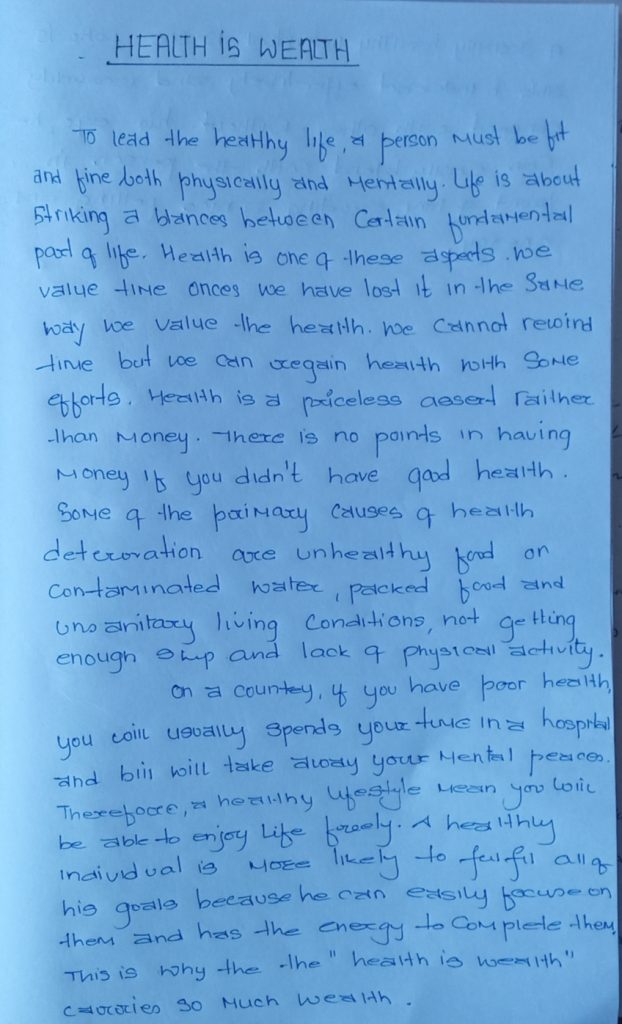 HEALTH iS WEALTH
To lead the healthy life, a person must be fit
and fine both physically and Mentally. Life is about
Striking a blances between Certain fundamental
part of life. Health is one of these aspects. we
value time onces we have lost it in the same
way we value the health. we cannot rewind
time but we can regain health with some
efforts. Health is a priceless assert railher
than money. There is no points in having
money if you didn't have good health.
Some of the primary causes of health
deteroration are unhealthy food or
contaminated water, packed food and
unsanitary living conditions, not getting
enough slup and lack of physical activity.
On a country, if you have poor health,
you will usually spends your time in a hospital
and bill will take away your mental peaces.
Therefore, a healthy lifestyle mean you will
be able to enjoy life freely. A healthly
individual is more likely to fulfil all of
his goals because he can easily focuse on
them and has the energy to complete them.
This is why the the "health is wealth"
carries so much wealth.